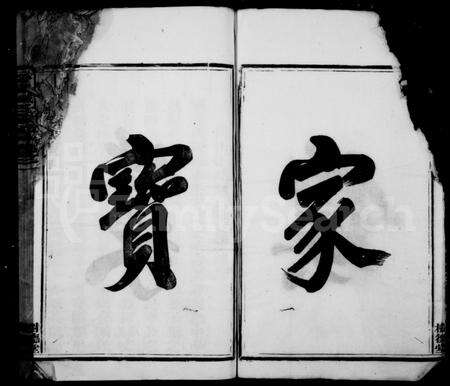 家
寶
FamilySearch